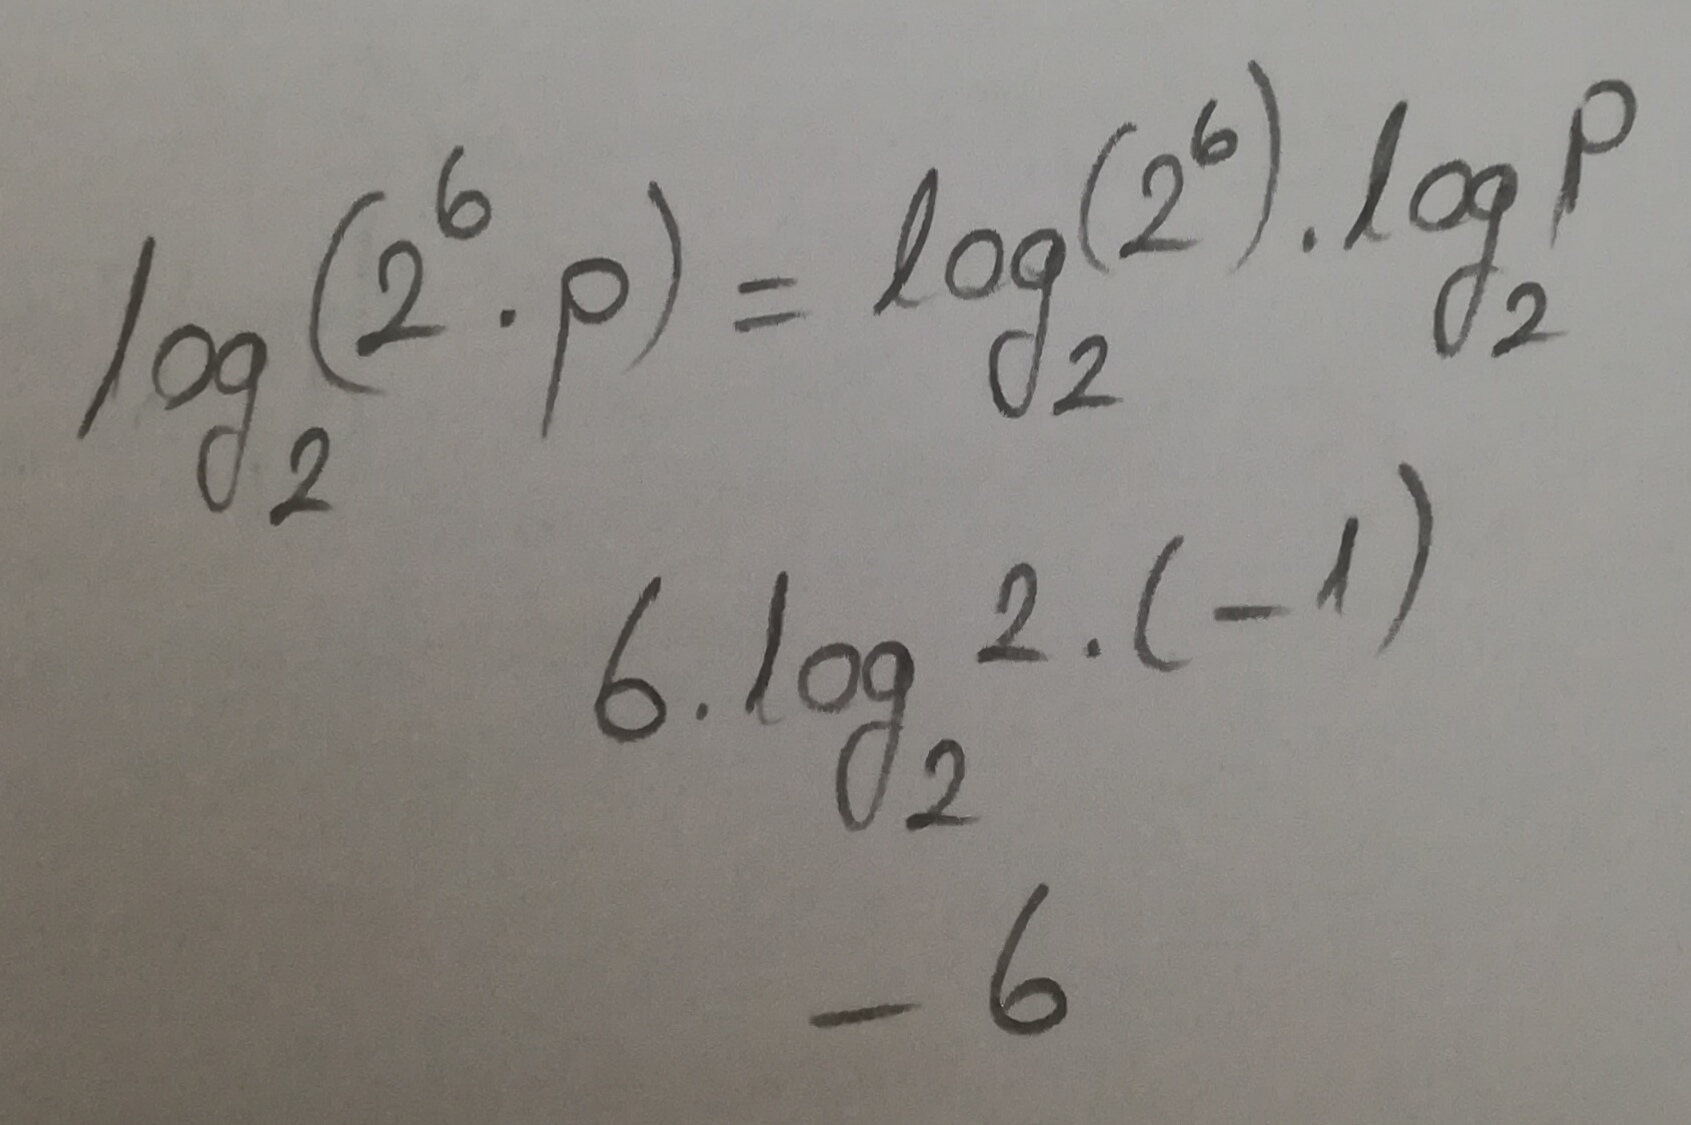 log₂(2⁶ . p) = log₂(2⁶) . log₂ p
6 . log₂ 2 . (-1)
- 6